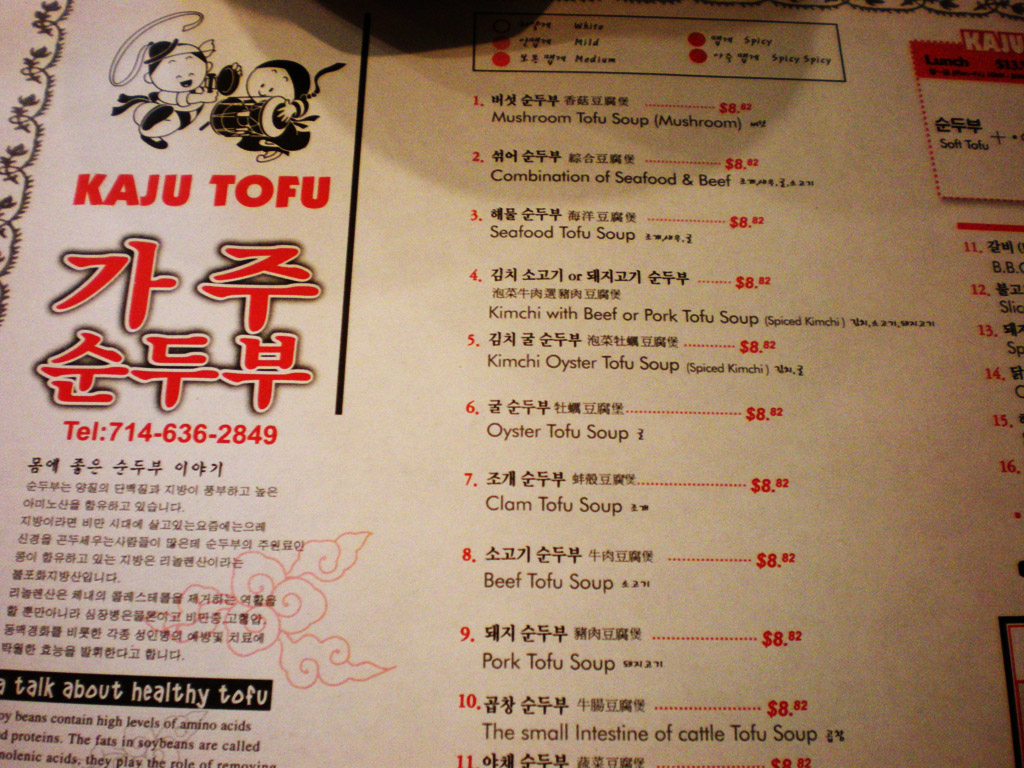 하얗게 White
안맵게 Mild
보통맵게 Medium
맵게 Spicy
아주맵게 Spicy Spicy
KAJU TOFU
가주
순두부
Tel:714-636-2849
몸에 좋은 순두부 이야기
순두부는 양질의 단백질과 지방이 풍부하고 높은
아미노산을 함유하고 있습니다.
지방이라면 비만 시대에 살고있는요즘에는으레
신경을 곤두세우는사람들이 많은데 순두부의 주원료인
콩이 함유하고 있는 지방은 리놀렌산이라는
불포화지방산입니다.
리놀렌산은 체내의 콜레스테롤을 제거하는 역활을
할 뿐만아니라 심장병은물론이고 비만증,고혈압,
동맥경화를 비롯한 각종 성인병의 예방및 치료에
탁월한 효능을 발휘한다고 합니다.
a talk about healthy tofu
oy beans contain high levels of amino acids
d proteins. The fats in soybeans are called
nolenic acids, they play the role of removing
1. 버섯 순두부 香菇豆腐煲 $8.82
Mushroom Tofu Soup (Mushroom) 버섯
2. 섞어 순두부 綜合豆腐煲 $8.82
Combination of Seafood & Beef 조개,새우,굴,소고기
3. 해물 순두부 海洋豆腐煲 $8.82
Seafood Tofu Soup 조개,새우,굴
4. 김치 소고기 or 돼지고기 순두부 $8.82
泡菜牛肉選豬肉豆腐煲
Kimchi with Beef or Pork Tofu Soup (Spiced Kimchi) 김치,소고기,돼지고기
5. 김치 굴 순두부 泡菜牡蠣豆腐煲 $8.82
Kimchi Oyster Tofu Soup (Spiced Kimchi) 김치,굴
6. 굴 순두부 牡蠣豆腐煲 $8.82
Oyster Tofu Soup 굴
7. 조개 순두부 蚌殼豆腐煲 $8.82
Clam Tofu Soup 조개
8. 소고기 순두부 牛肉豆腐煲 $8.82
Beef Tofu Soup 소고기
9. 돼지 순두부 豬肉豆腐煲 $8.82
Pork Tofu Soup 돼지고기
10. 곱창 순두부 牛腸豆腐煲 $8.82
The small Intestine of cattle Tofu Soup 곱창
11. 야채 순두부 蔬菜豆腐煲 $8.82
KAJU
Lunch
순두부
Soft Tofu +
11. 갈비
B.B.
12. 불고
Slic
13. 돼지
Sp
14. 닭
15.
16.